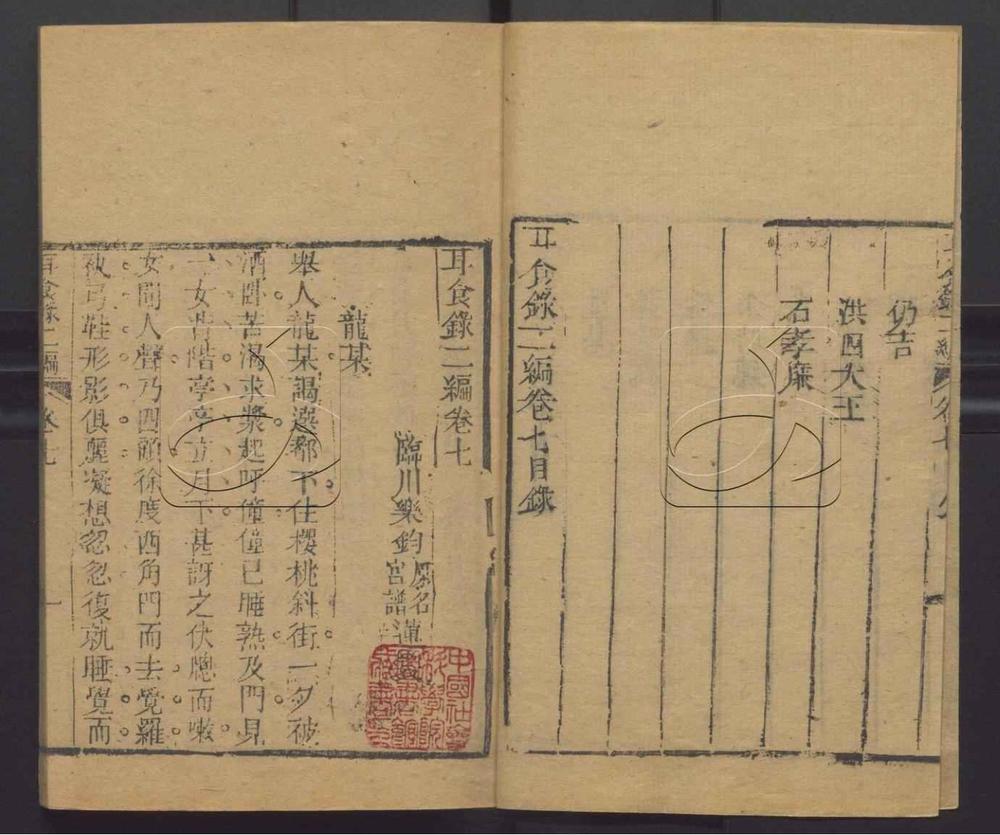 仍吉
洪四大王
石孝廉
耳食錄二編卷七目錄
耳食錄二編卷七
臨川樂鈞
原名
宮譜
龍某
舉人龍某謁選都下住櫻桃斜街一夕被
酒臥苦渴求漿起呼僮僮已睡熟及門見
一女背階亭亭立月下甚訝之伏牕而嗽
女聞人聲乃四顧徐度西角門而去覺羅
襪弓鞋形影俱麗凝想忽忽復就睡覺而
耳食錄二編
卷七
一